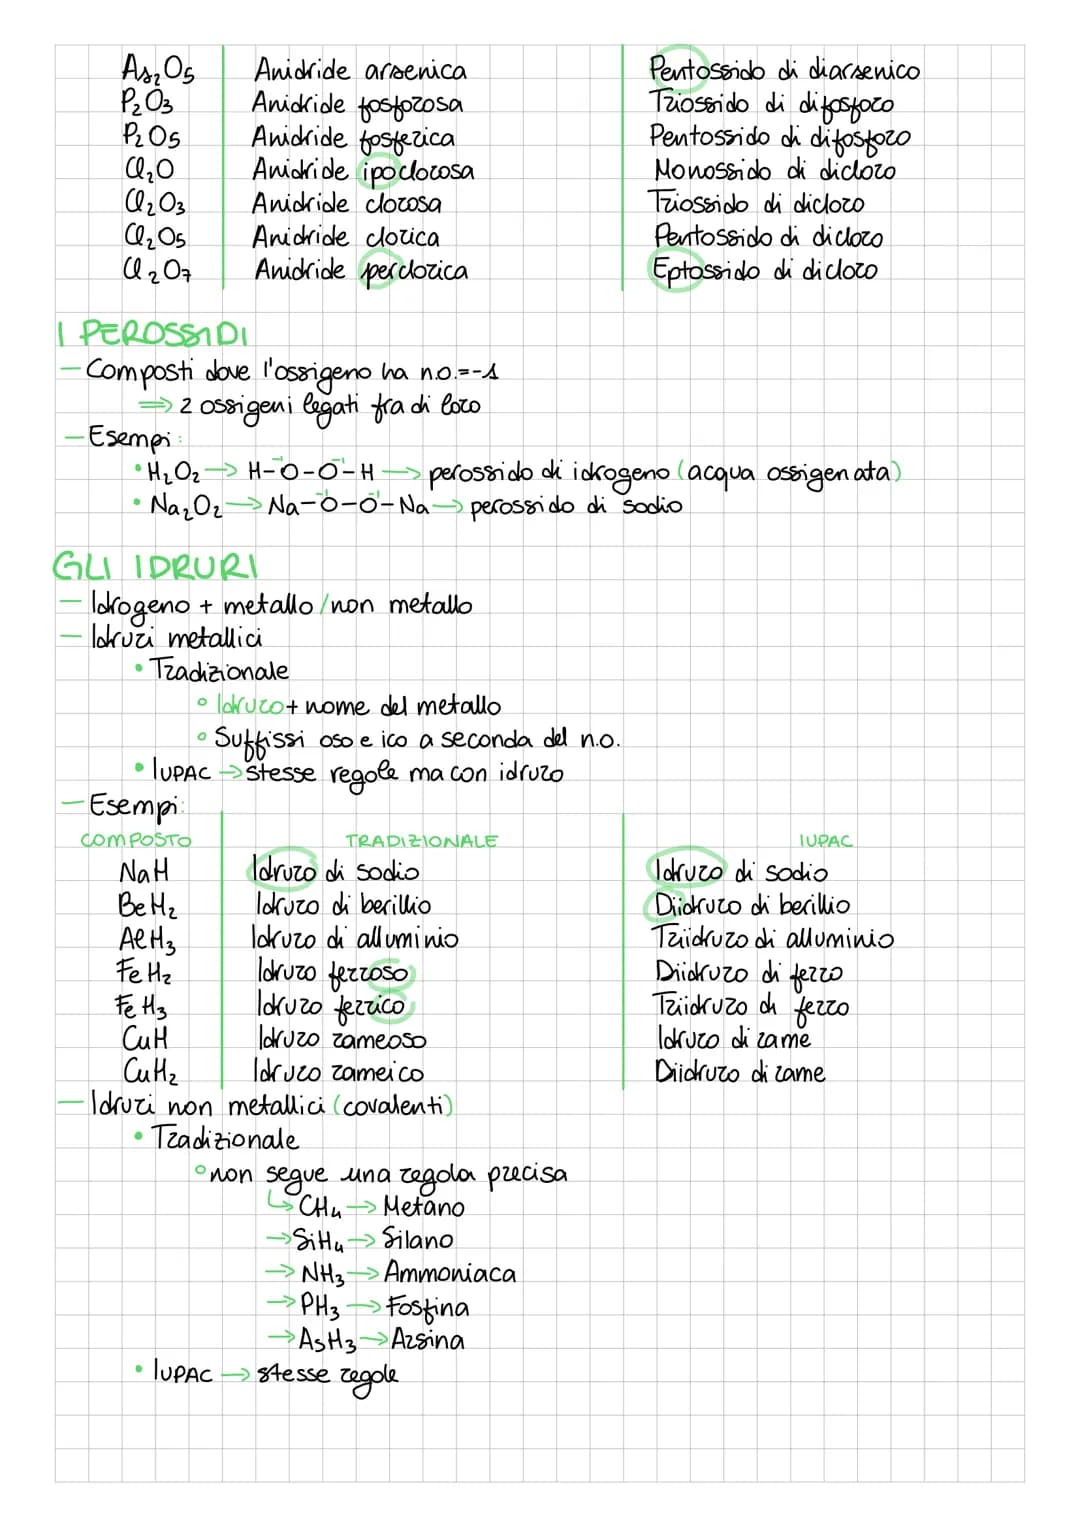 As₂O₅ Anidride arsenica Pentossido di diarsenico
P₂O₃ Anidride fosforosa Triossido di difosforo
P₂O₅ Anidride fosferica Pentossido di difosforo
Cl₂O Anidride ipoclorosa Monossido di dicloro
Cl₂O₃ Anidride clorosa Triossido di dicloro
Cl₂O₅ Anidride clorica Pentossido di dicloro
Cl₂O₇ Anidride perclorica Eptossido di dicloro
I PEROSSIDI
- Composti dove l'ossigeno ha n.o.=-1
⇒ 2 ossigeni legati fra di loro
- Esempi:
• H₂O₂ → H-O⁻¹-O⁻¹-H → perossido di idrogeno (acqua ossigenata)
• Na₂O₂ → Na-O⁻¹-O⁻¹-Na → perossido di sodio
GLI IDRURI
- Idrogeno + metallo/non metallo
- Idruri metallici
• Tradizionale
° Idruro + nome del metallo
° Suffissi oso e ico a seconda del n.o.
• IUPAC → stesse regole ma con idruro
- Esempi:
COMPOSTO TRADIZIONALE IUPAC
NaH Idruro di sodio Idruro di sodio
BeH₂ Idruro di berillio Diidruro di berillio
AlH₃ Idruro di alluminio Triidruro di alluminio
FeH₂ Idruro ferroso Diidruro di ferro
FeH₃ Idruro ferrico Triidruro di ferro
CuH Idruro rameoso Idruro di rame
CuH₂ Idruro rameico Diidruro di rame
- Idruri non metallici (covalenti)
• Tradizionale
° non segue una regola precisa
↳ CH₄ → Metano
→ SiH₄ → Silano
→ NH₃ → Ammoniaca
→ PH₃ → Fosfina
→ AsH₃ → Arsina
• IUPAC → stesse regole